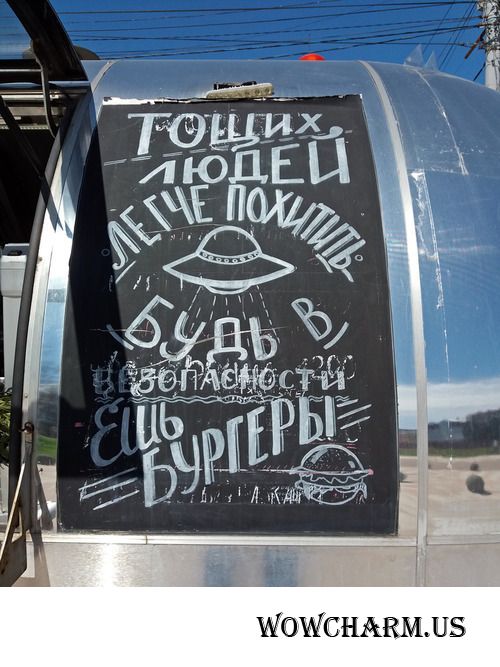 ТОЩИХ
ЛЮДЕЙ
ЛЕГЧЕ ПОХИТИТЬ
БУДЬ В
БЕЗОПАСНОСТИ
ЕШЬ
БУРГЕРЫ
WOWCHARM.US